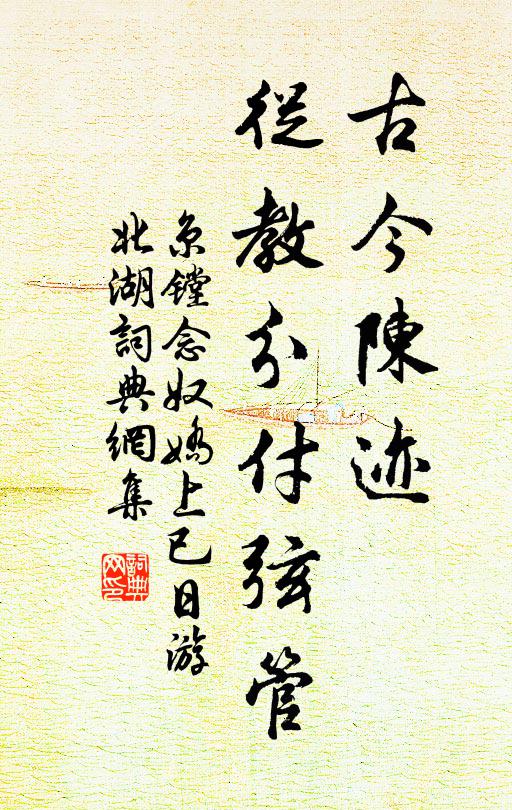 古今陳迹
從教分付弦管
京鏜念奴嬌上巳日游
北湖詞典網集
詞典网印